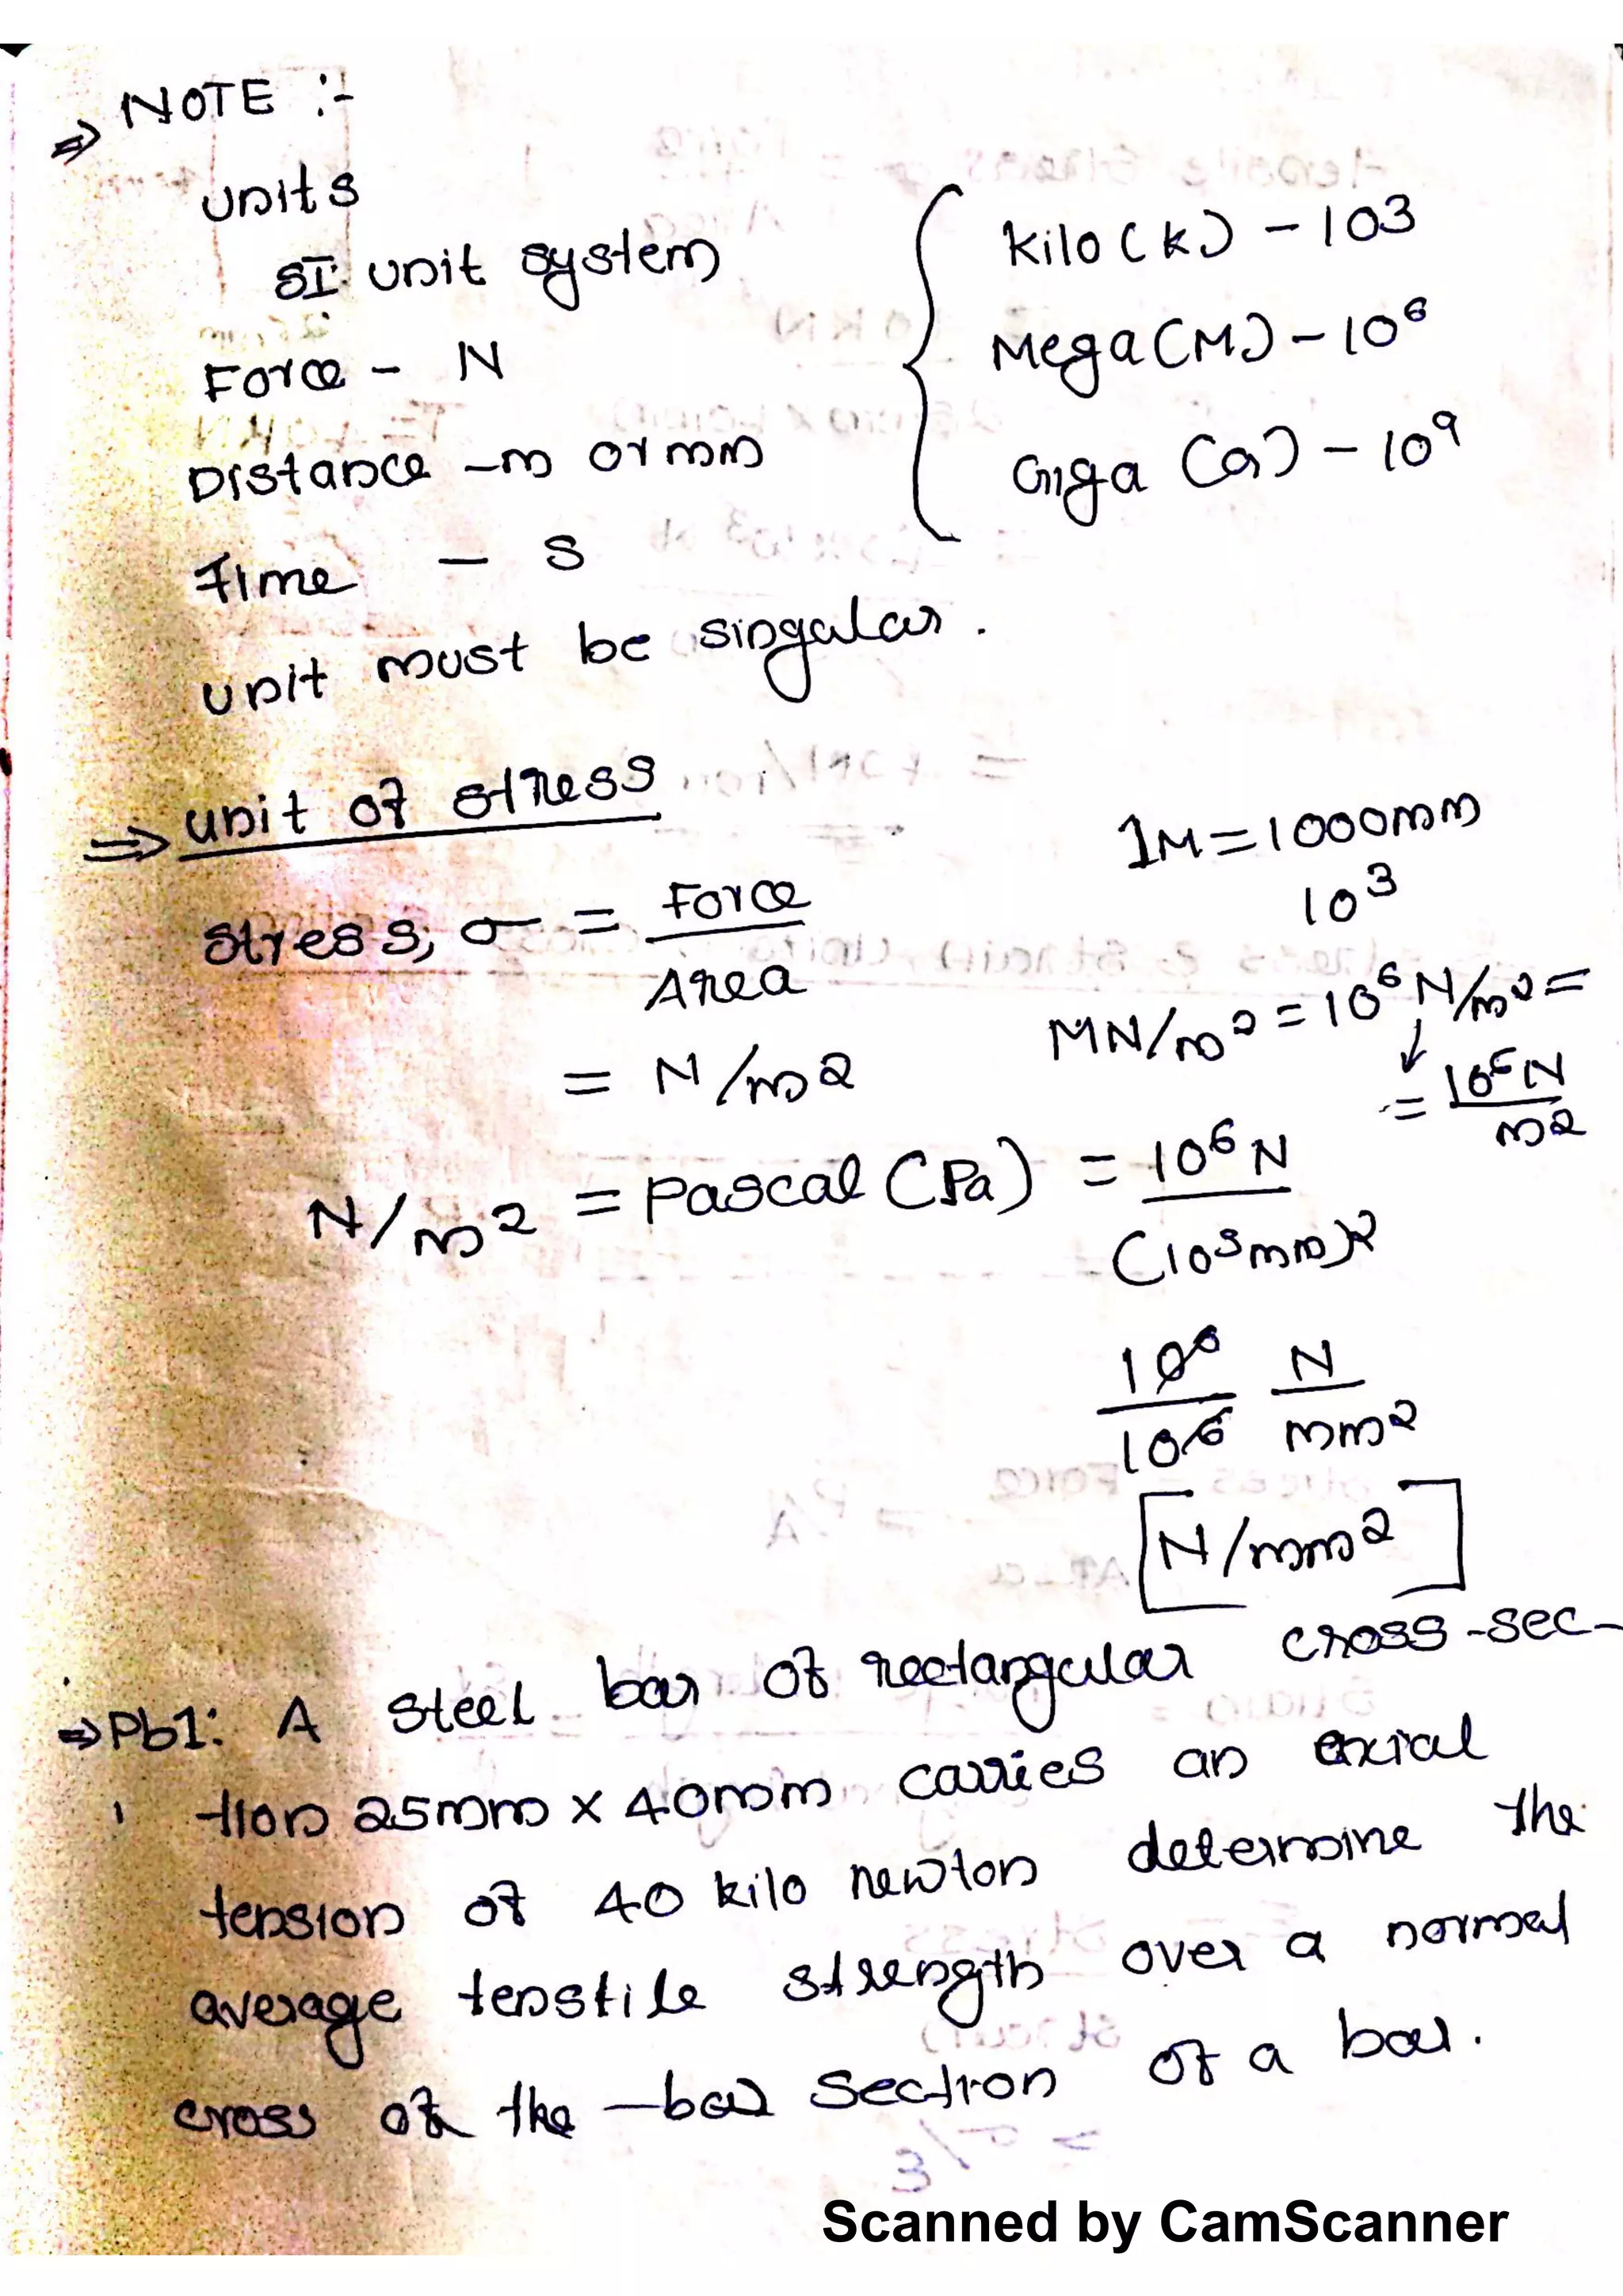 ⇒ NOTE :-
units
SI unit system
Force - N
Distance - m or mm
Time - S
unit must be singular.
Kilo (K) - 103
Mega (M) - 10⁶
Giga (G) - 10⁹
⇒ unit of stress
stress, σ = Force
Area
= N/m2
N/m2 = pascal (Pa)
1M = 1000mm
10³
MN/m² = 10⁶ N/m² =
↓
= 10⁶N
m2
= 10⁶ N
(10³mm)2
10⁶ N
10⁶ mm²
[N/mm²]
⇒ Pb1: A steel bar of rectangular cross-sec-
tion 25mm x 40mm carries an axial
tension of 40 kilo newton determine the
average tenstile strength over a normal
cross of the -bar section of a bar.
Scanned by CamScanner